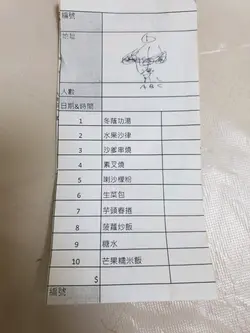 編號
地址
A B C
人數
日期&時間
1 冬蔭功湯
2 水果沙律
3 沙爹串燒
4 素叉燒
5 喇沙檬粉
6 生菜包
7 芋頭春捲
8 菠蘿炒飯
9 糖水
10 芒果糯米飯
$
編號